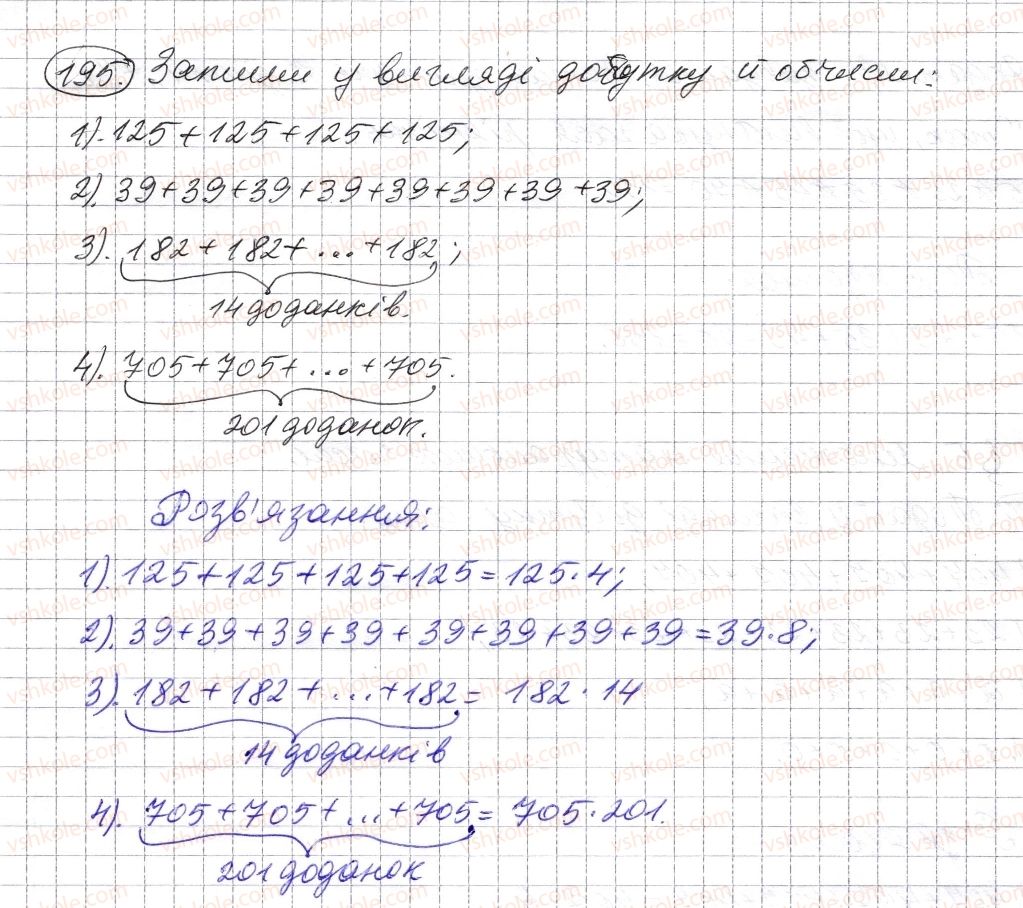 195. Запиши у вигляді добутку й обчисли:
1). 125+125+125+125;
2). 39+39+39+39+39+39+39+39;
3). 182+182+...+182;
14 доданків.
4). 705+705+...+705.
201 доданок.
Розв'язання:
1). 125+125+125+125=125·4;
2). 39+39+39+39+39+39+39+39=39·8;
3). 182+182+...+182= 182·14
14 доданків
4). 705+705+...+705= 705·201.
201 доданок